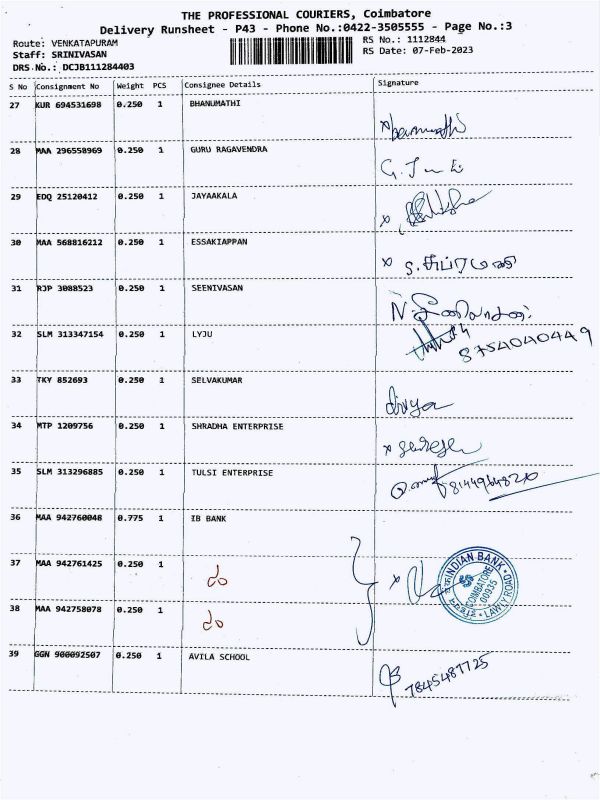 THE PROFESSIONAL COURIERS, Coimbatore
Delivery Runsheet - P43 - Phone No.:0422-3505555 - Page No.:3
Route: VENKATAPURAM
Staff: SRINIVASAN
DRS No.: DCJB111284403
RS No.: 1112844
RS Date: 07-Feb-2023
S No Consignment No Weight PCS Consignee Details Signature
27 KUR 694531698 0.250 1 BHANUMATHI
28 MAA 296558969 0.250 1 GURU RAGAVENDRA
29 EDQ 25120412 0.250 1 JAYAAKALA
30 MAA 568816212 0.250 1 ESSAKIAPPAN
31 RJP 3088523 0.250 1 SEENIVASAN
32 SLM 313347154 0.250 1 LYJU 8754040449
33 TKY 852693 0.250 1 SELVAKUMAR divya
34 MTP 1209756 0.250 1 SHRADHA ENTERPRISE
35 SLM 313296885 0.250 1 TULSI ENTERPRISE
36 MAA 942760048 0.775 1 IB BANK
37 MAA 942761425 0.250 1 do
38 MAA 942758078 0.250 1 do
INDIAN BANK
COIMBATORE
LAWLY ROAD
39 GGN 900092507 0.250 1 AVILA SCHOOL 7845487725